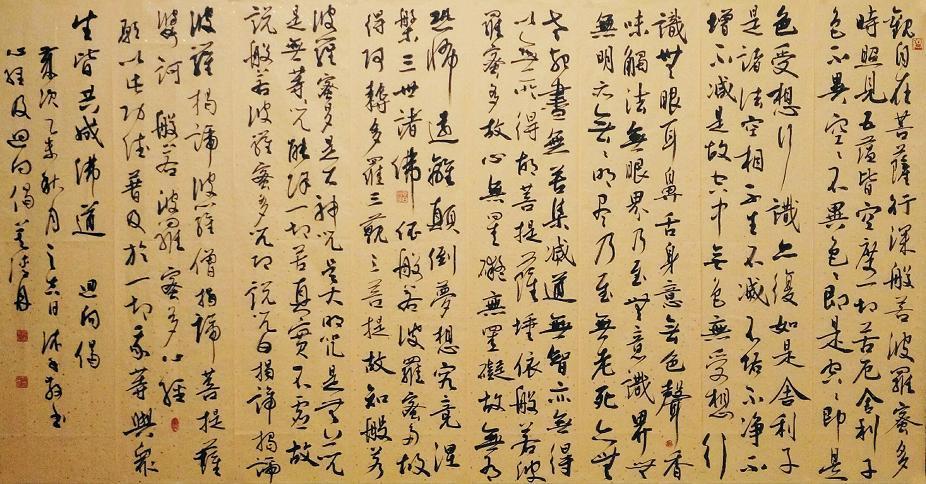 观自在菩萨行深般若波羅蜜多
時照見五蕴皆空度一切苦厄舍利子
色不異空空不異色色即是空空即是
色受想行識亦復如是舍利子
是諸法空相不生不滅不垢不净不
增不减是故空中無色無受想行
識無眼耳鼻舌身意無色聲香
味觸法無眼界乃至無意識界無
無明亦無無明尽乃至無老死亦無
老死盡無苦集滅道無智亦無得
以無所得故菩提薩埵依般若波
羅蜜多故心無罣礙無罣礙故無有
恐怖遠離顛倒夢想究竟涅
槃三世諸佛依般若波羅蜜多故
得阿耨多羅三藐三菩提故知般若
波羅蜜多是大神咒是大明咒是無上咒
是無等咒能除一切苦真實不虚故
説般若波羅蜜多咒即説咒曰揭諦揭諦
波羅揭諦波羅僧揭諦菩提薩
婆訶 般若波羅蜜多心經
願以此功德普及於一切我等與衆
生皆共成佛道 迴向偈
歲次乙未秋月之吉日沐手敬書
心經及迴向偈